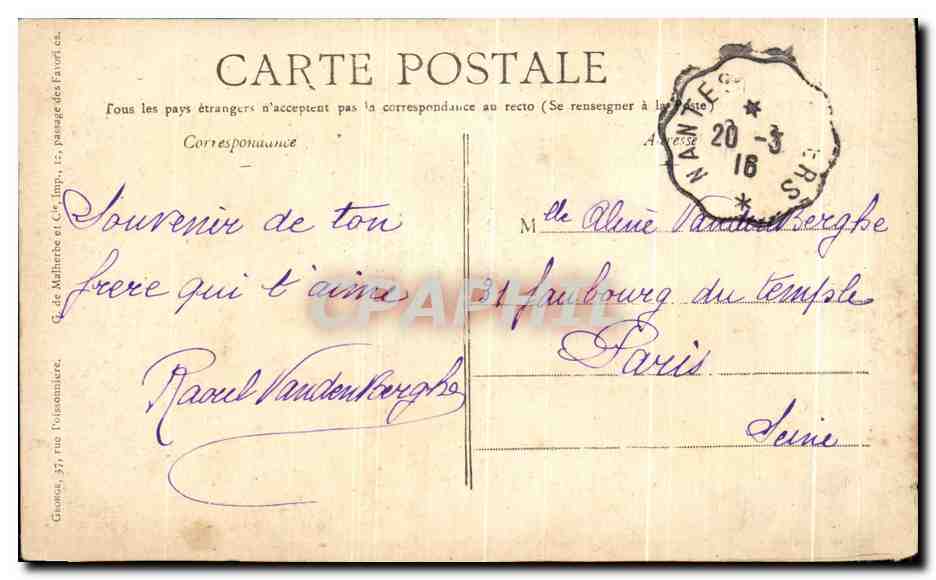 CARTE POSTALE
Tous les pays étrangers n'acceptent pas la correspondance au recto (Se renseigner à la Poste)
Correspondance
Souvenir de ton
frere qui t'aime
Raoul VandenBerghe
Adresse
NANTES ERS
20 -3
16
Mlle Aline VandenBerghe
31 faubourg du temple
Paris
Seine
GEORGE, 37, rue Poissonnière.
G. de Malherbe et Cie, Imp., 12, passage des Favorites.
CPAPHIL